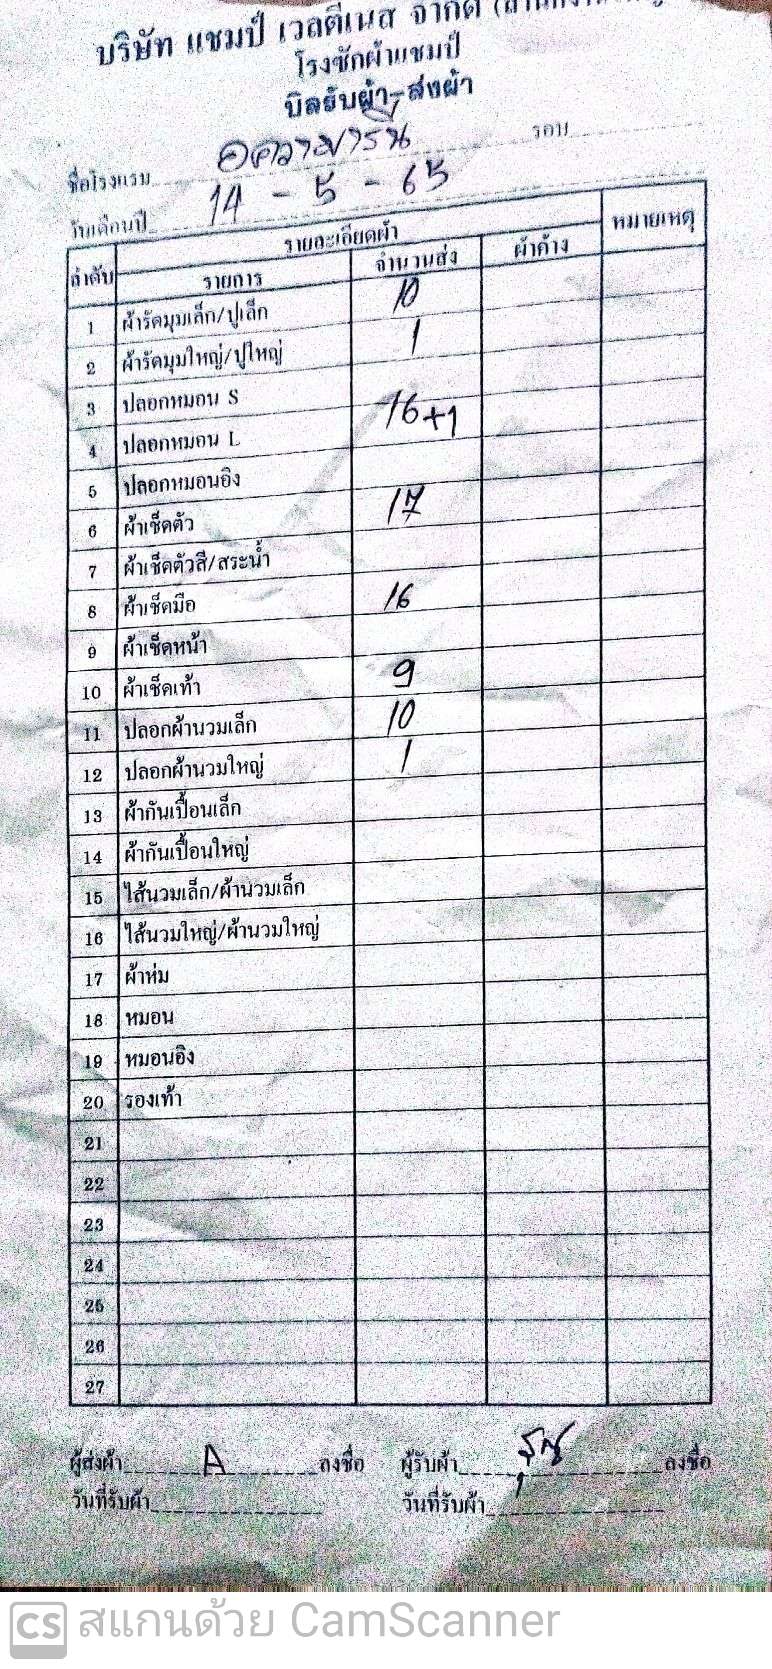 บริษัท แชมป์ เวลตีเนส จำกัด
โรงซักผ้าแชมป์
บิลรับผ้า-ส่งผ้า
ชื่อโรงแรม อความารีน รอบ
วันเดือนปี 14 - 5 - 65
ลำดับ รายละเอียดผ้า หมายเหตุ
รายการ จำนวนส่ง ผ้าค้าง
1 ผ้ารัดมุมเล็ก/ปูเล็ก 10
2 ผ้ารัดมุมใหญ่/ปูใหญ่ 1
3 ปลอกหมอน S
4 ปลอกหมอน L 16+1
5 ปลอกหมอนอิง
6 ผ้าเช็ดตัว 17
7 ผ้าเช็ดตัวสี/สระน้ำ
8 ผ้าเช็ดมือ 16
9 ผ้าเช็ดหน้า
10 ผ้าเช็ดเท้า 9
11 ปลอกผ้านวมเล็ก 10
12 ปลอกผ้านวมใหญ่ 1
13 ผ้ากันเปื้อนเล็ก
14 ผ้ากันเปื้อนใหญ่
15 ไส้นวมเล็ก/ผ้านวมเล็ก
16 ไส้นวมใหญ่/ผ้านวมใหญ่
17 ผ้าห่ม
18 หมอน
19 หมอนอิง
20 รองเท้า
21
22
23
24
25
26
27
ผู้ส่งผ้า A ลงชื่อ ผู้รับผ้า ลงชื่อ
วันที่รับผ้า วันที่รับผ้า
CS สแกนด้วย CamScanner